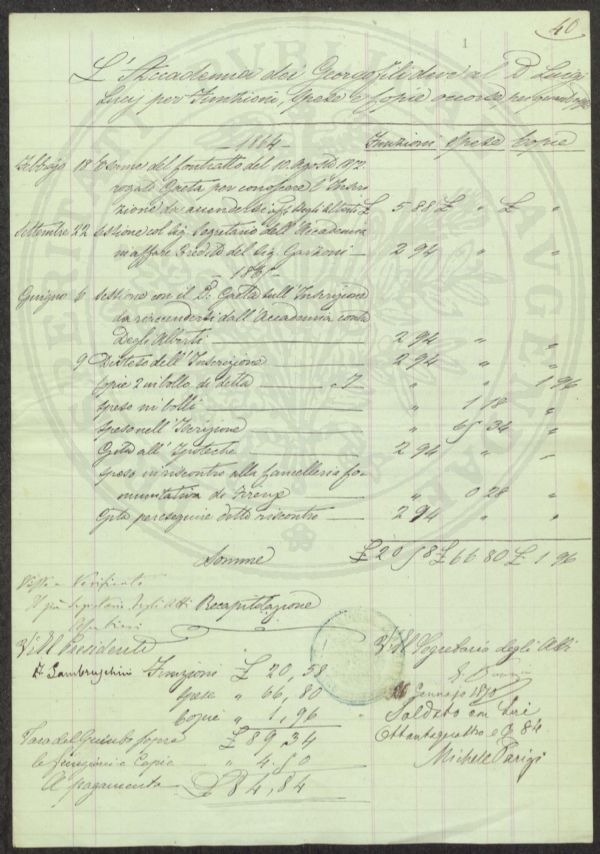 40
1
L'Accademia dei Georgofili deve al D. Luigi
Lucij per Funzioni, Spese e Copie occorse per
1864 Funzioni Spese Copie
Febbrajo 18 Esame del Contratto del 10. Agosto 1872
rogato per conoscere l'Inscri-
zione da degli Alberti £ 5 88 £ " £ "
Settembre 22 Sessione col Sig. Segretario dell'Accademia
in affare Eredità del Sig. Garzoni 2 94 " "
Giugno 6 Sessione con il D. sull'Inscrizione
da rinnovarsi dall'Accademia contro
Degli Alberti 2 94 " "
9 Disteso dell'Inscrizione 2 94 " "
Copie 2 in bollo di detta " " 1 96
Speso in bolli " 1 18 "
Speso nell'Iscrizione " 65 34 "
Gita all'Ipoteche 2 94 " "
Speso in riscontro alla Cancelleria Co-
munitativa di Firenze " 0 28 "
Gita per eseguire detto riscontro 2 94 " "
Somme £ 20 58 £ 66 80 £ 1 96
Visto e Verificato
Il Segretario degli Atti
Recapitolazione
V. Il Presidente
R. Lambruschini
Funzioni £ 20, 58
Spese " 66, 80
Copie " 1, 96
£ 89, 34
Tara del Quinto sopra
le Funzioni e Copie " 4. 50
A pagamento £ 84, 84
V. Il Segretario degli Atti
26 Gennajo 1870
Saldato con Lire
Ottantaquattro e C. 84
Michele Parigi